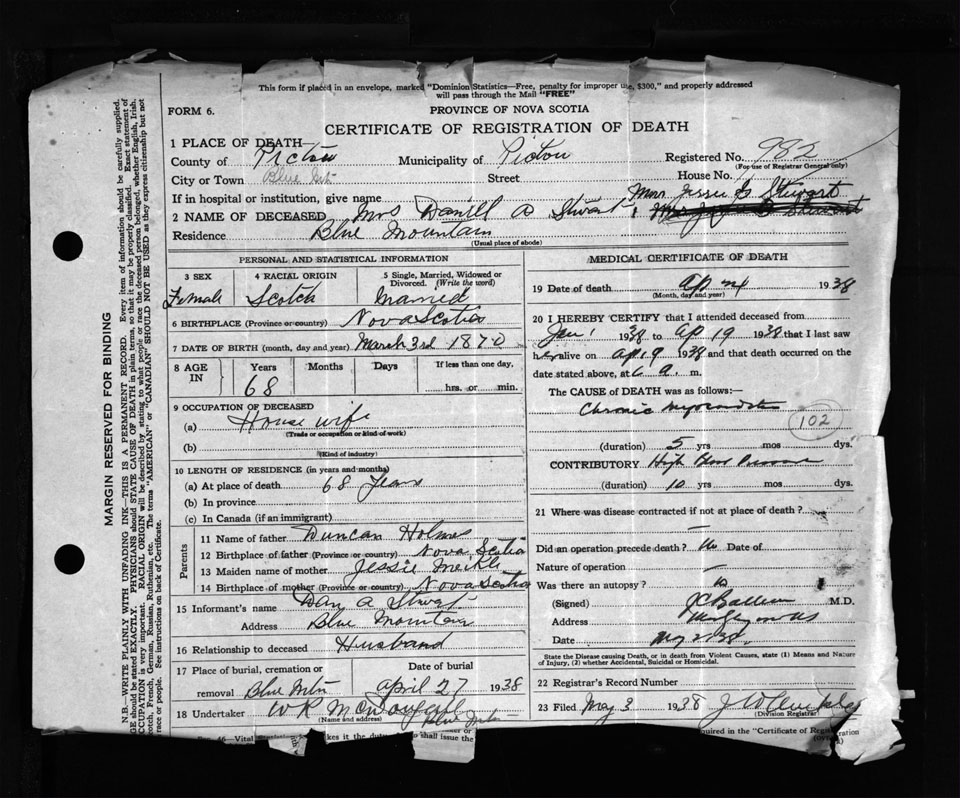 This form if placed in an envelope, marked "Dominion Statistics—Free, penalty for improper use, $300," and properly addressed
will pass through the Mail "FREE"
FORM 6.
PROVINCE OF NOVA SCOTIA
CERTIFICATE OF REGISTRATION OF DEATH
1 PLACE OF DEATH—
County of Pictou Municipality of Pictou Registered No. 982
(For use of Registrar General only)
City or Town Blue Mt. Street House No.
If in hospital or institution, give name Mrs Jessie G Stewart
2 NAME OF DECEASED Mrs Daniel A Stewart
Residence Blue Mountain
(Usual place of abode)
PERSONAL AND STATISTICAL INFORMATION
3 SEX 4 RACIAL ORIGIN 5 Single, Married, Widowed or
Divorced. (Write the word)
Female Scotch Married
6 BIRTHPLACE (Province or country) Nova Scotia
7 DATE OF BIRTH (month, day and year) March 3rd 1870
8 AGE IN Years Months Days If less than one day,
68 hrs. or min.
9 OCCUPATION OF DECEASED
(a) House wife
(Trade or occupation or kind of work)
(b)
(Kind of industry)
10 LENGTH OF RESIDENCE (in years and months)
(a) At place of death 68 Years
(b) In province
(c) In Canada (if an immigrant)
Parents
11 Name of father Duncan Holmes
12 Birthplace of father (Province or country) Nova Scotia
13 Maiden name of mother Jessie
14 Birthplace of mother (Province or country) Nova Scotia
15 Informant's name Dan A Stewart
Address Blue Mountain
16 Relationship to deceased Husband
17 Place of burial, cremation or Date of burial
removal Blue Mtn April 27 1938
18 Undertaker W R
(Name and address) Blue Mtn
MEDICAL CERTIFICATE OF DEATH
19 Date of death Ap 24 1938
(Month, day and year)
20 I HEREBY CERTIFY that I attended deceased from
Jan 1 1938 to Ap 19 1938 that I last saw
her alive on Ap 19 1938 and that death occurred on the
date stated above, at 6 a. m.
The CAUSE of DEATH was as follows:—
Chronic Myocarditis
102
(duration) 5 yrs mos dys.
CONTRIBUTORY High Blood Pressure
(duration) 10 yrs. mos. dys.
21 Where was disease contracted if not at place of death?
—
Did an operation precede death? No Date of
Nature of operation —
Was there an autopsy? no
(Signed) M.D.
Address
Date May 2 38
State the Disease causing Death, or in death from Violent Causes, state (1) Means and Nature
of Injury, (2) whether Accidental, Suicidal or Homicidal.
22 Registrar's Record Number
23 Filed May 3 1938 J W
(Division Registrar)
MARGIN RESERVED FOR BINDING
N.B.—WRITE PLAINLY WITH UNFADING INK—THIS IS A PERMANENT RECORD. Every item of information should be carefully supplied.
AGE should be stated EXACTLY. PHYSICIANS should STATE CAUSE OF DEATH in plain terms, so that it may be properly classified. Exact statement of
OCCUPATION is very important. RACIAL ORIGIN will be described by stating to what people or race the deceased person belonged, whether English, Irish,
Scotch, French, German, Russian, Ruthenian, etc. The terms "AMERICAN" or "CANADIAN" SHOULD NOT BE USED as they express citizenship but not
a race or people. See instructions on back of Certificate.
46—Vital
makes it the du
shall issue the
required in the "Certificate of Registration